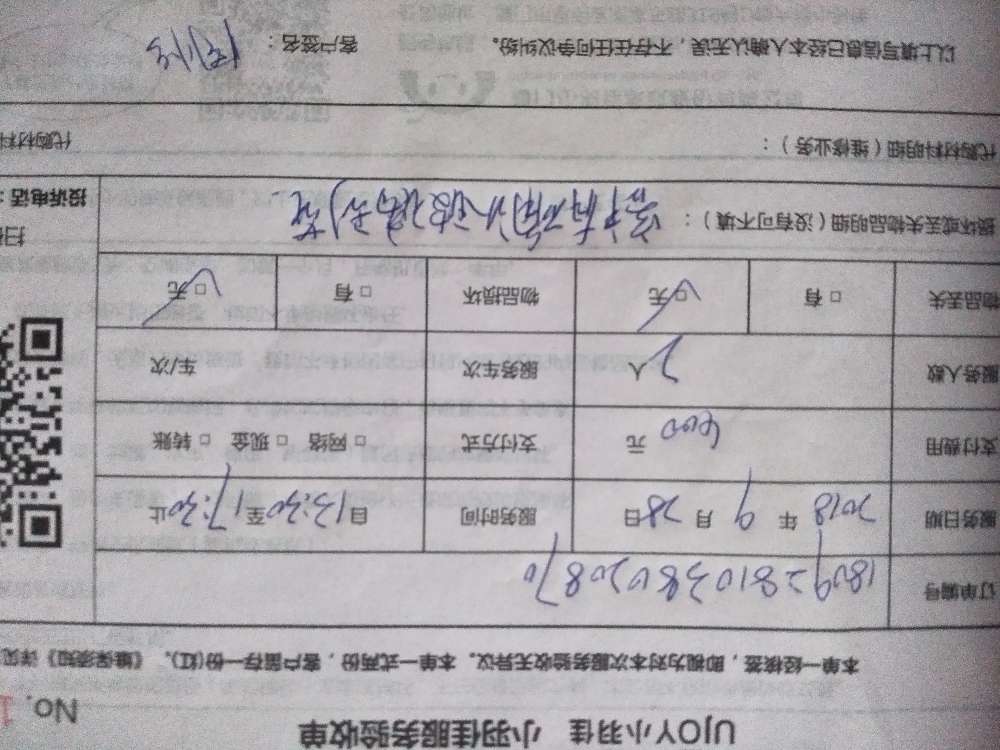 UJOY小羽佳 小羽佳服务验收单
No. 1
本单一经核签，即视为对本次服务验收无异议。本单一式两份，客户留存一份(红)。《维保须知》详见
订单编号 1809281038020870
服务日期 2018 年 9 月 28 日 服务时间 自 13:30 至 17:30 止
支付费用 元 支付方式 □ 网络 □ 现金 □ 转账
服务人数 2 人 服务车次 车/次
物品丢失 □ 有 □ 无 物品损坏 □ 有 □ 无
扫
损坏或丢失物品明细（没有可不填）：
投诉电话：
代购材料明细（维修业务）： 代购材料
以上填写信息已经本人确认无误，不存在任何争议纠纷。 客户签名：